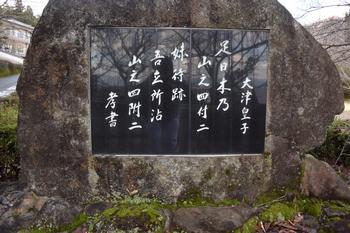 大津皇子
足日木乃
山之四付二
妹待跡
吾立所沾
山之四附二
孝書